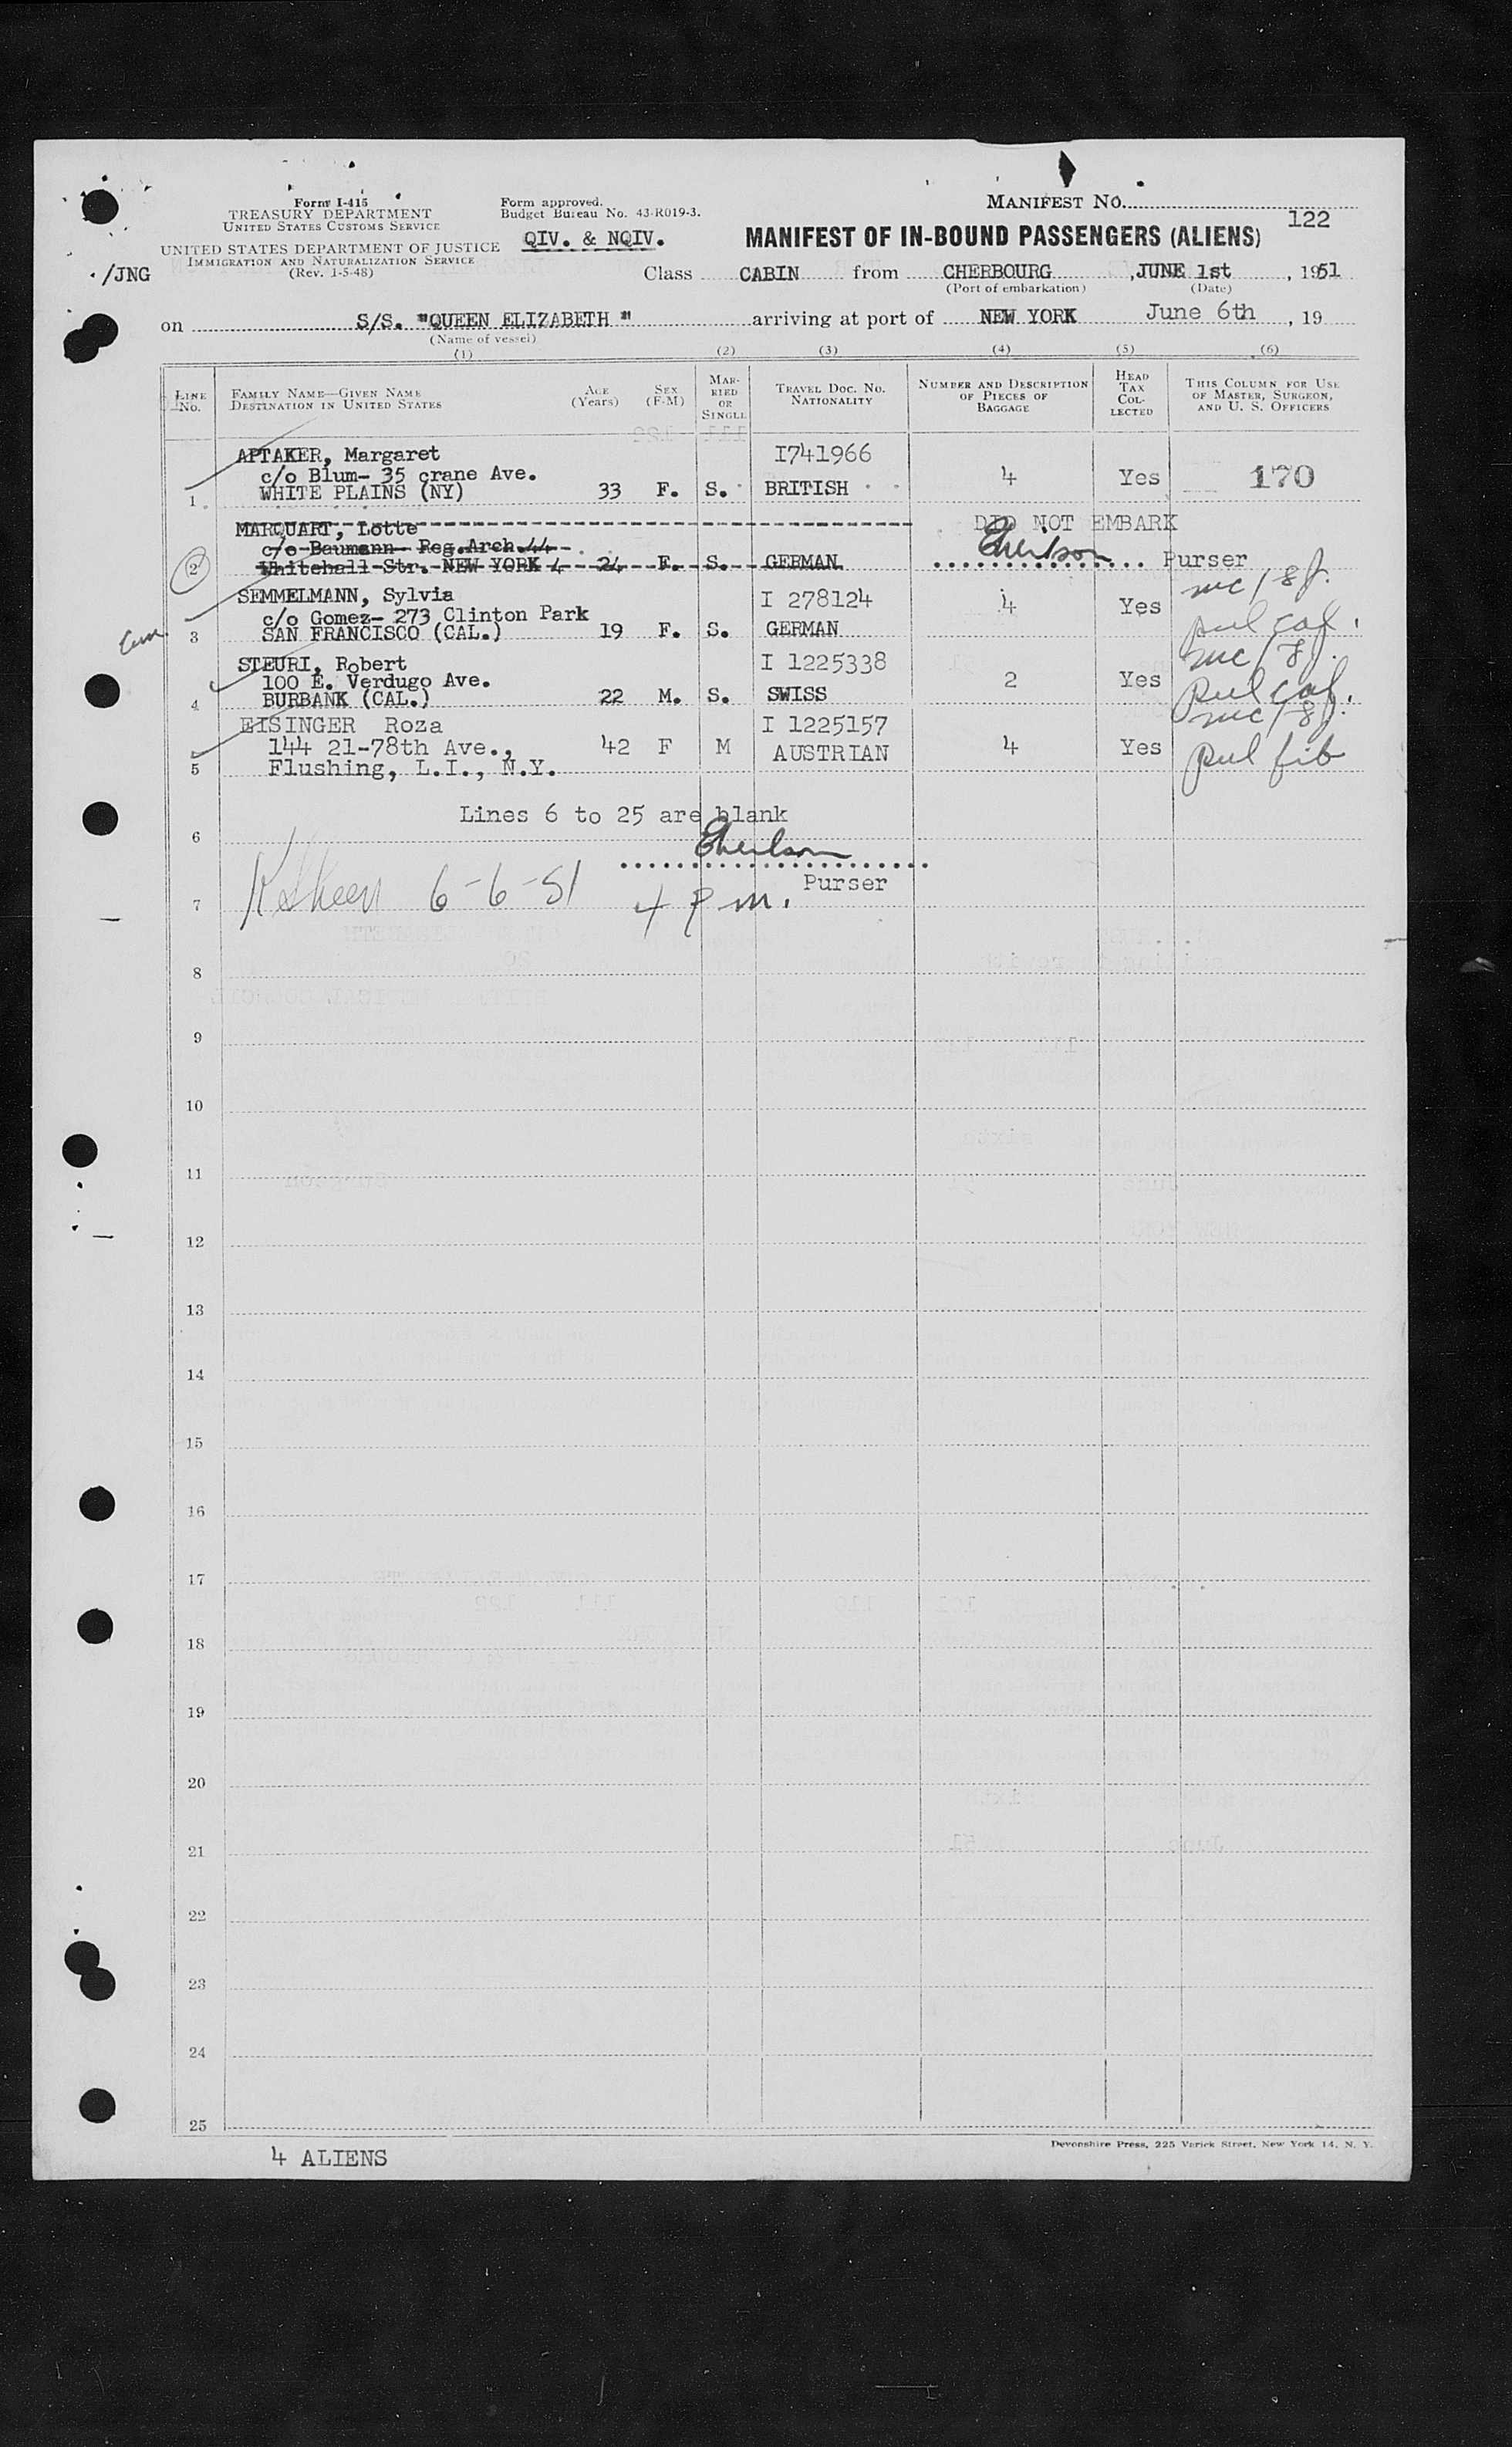 Form I-415
TREASURY DEPARTMENT
UNITED STATES CUSTOMS SERVICE
UNITED STATES DEPARTMENT OF JUSTICE
IMMIGRATION AND NATURALIZATION SERVICE
(Rev. 1-5-48)
/JNG
Form approved.
Budget Bureau No. 43-R019-3.
QIV. & NQIV.
MANIFEST NO.
122
MANIFEST OF IN-BOUND PASSENGERS (ALIENS)
Class CABIN from CHERBOURG, JUNE 1st, 1951
(Port of embarkation) (Date)
on S/S. "QUEEN ELIZABETH" arriving at port of NEW YORK June 6th, 19
(Name of vessel)
(1) (2) (3) (4) (5) (6)
LINE NO. FAMILY NAME—GIVEN NAME DESTINATION IN UNITED STATES AGE (Years) SEX (F-M) MARRIED OR SINGLE TRAVEL DOC. NO. NATIONALITY NUMBER AND DESCRIPTION OF PIECES OF BAGGAGE HEAD TAX COLLECTED THIS COLUMN FOR USE OF MASTER, SURGEON, AND U. S. OFFICERS
APTAKER, Margaret I741966
c/o Blum- 35 crane Ave. 4 Yes 170
1 WHITE PLAINS (NY) 33 F. S. BRITISH
MARQUART, Lotte DID NOT EMBARK
c/o Baumann- Reg.Arch.44
2 Whitehall Str. NEW YORK 4 24 F. S. GERMAN Purser
SEMMELMANN, Sylvia I 278124 4 Yes
c/o Gomez- 273 Clinton Park
3 SAN FRANCISCO (CAL.) 19 F. S. GERMAN
STEURI, Robert I 1225338
100 E. Verdugo Ave. 2 Yes
4 BURBANK (CAL.) 22 M. S. SWISS
EISINGER Roza I 1225157
144 21-78th Ave., 42 F M AUSTRIAN 4 Yes
5 Flushing, L.I., N.Y.
Lines 6 to 25 are blank
6
Purser
7 6-6-51 4 P m.
8
9
10
11
12
13
14
15
16
17
18
19
20
21
22
23
24
25
4 ALIENS
Devonshire Press, 225 Varick Street, New York 14, N. Y.